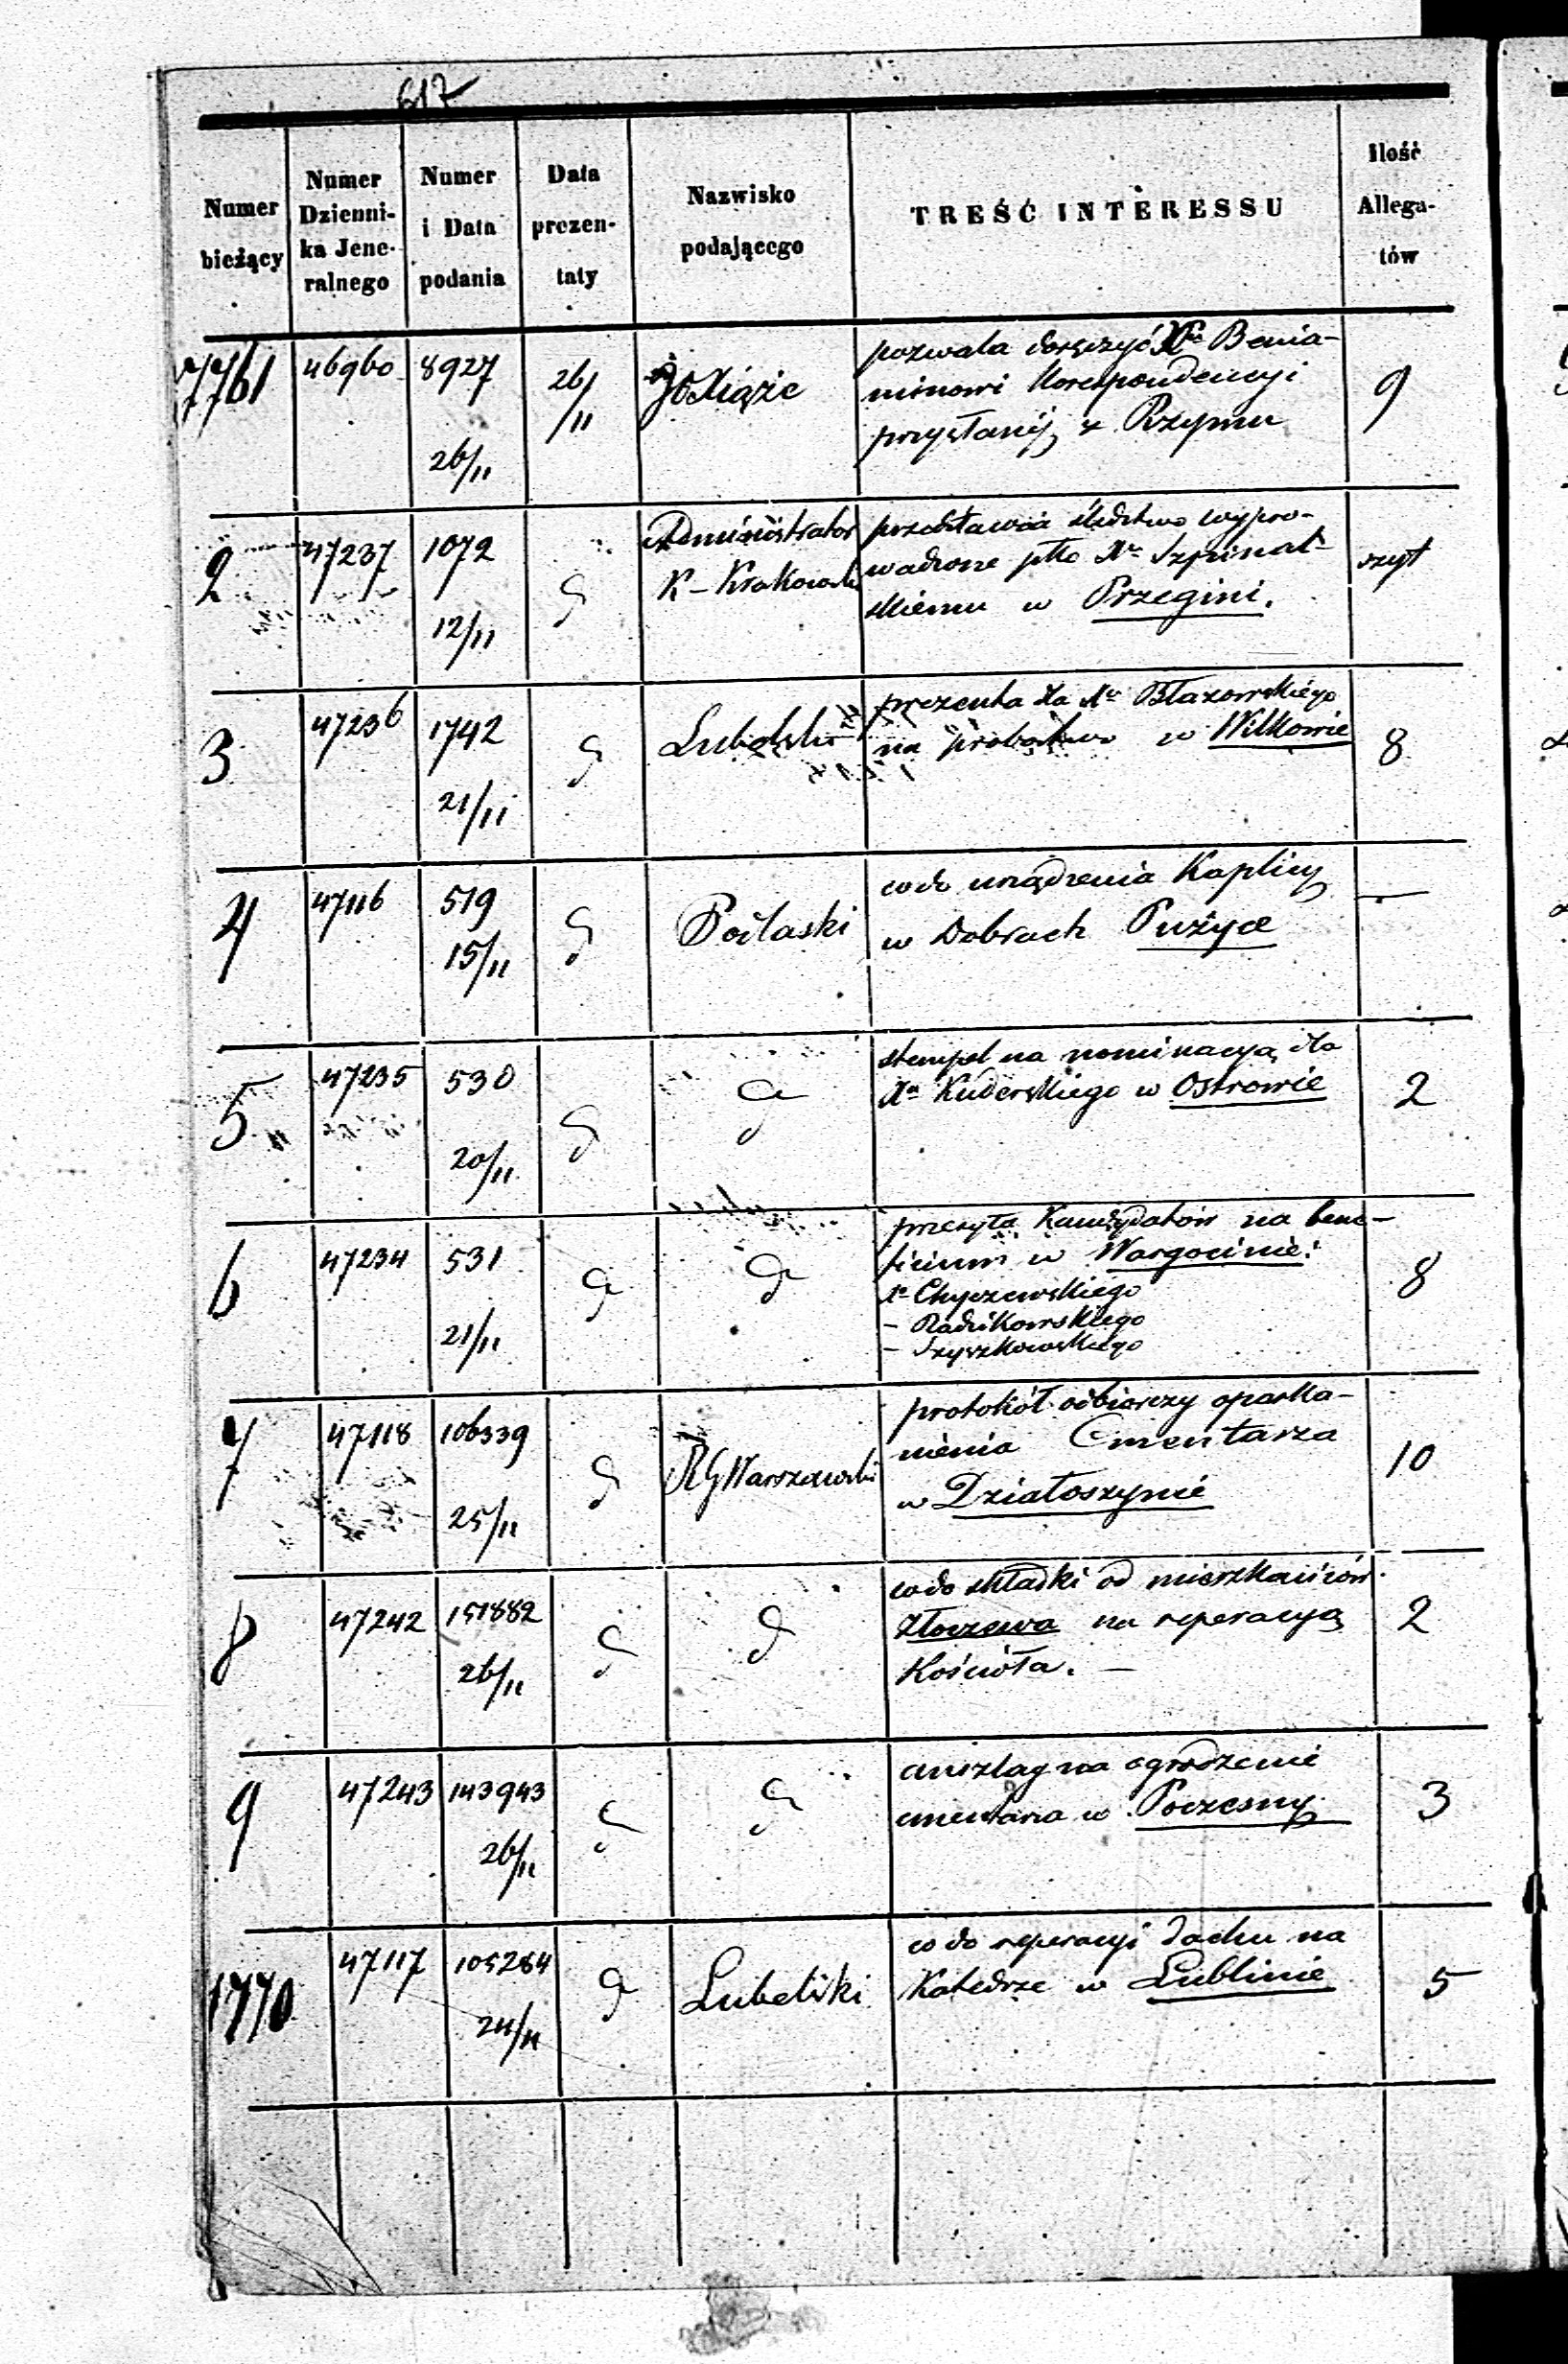 617
Numer bieżący
Numer Dzienni-ka Jene-ralnego
Numer i Data podania
Data prezen-taty
Nazwisko podającego
TREŚĆ INTERESSU
Ilość Allega-tów
7761 46960 8927 26/11 26/11 JO Xiąże 9
pozwala doręczyć Xu Benia-
minowi Korespondencyi
przysłanéj z Rzymu
2 47237 1072 12/11 Administrator K-Krakowski szyt
przedstawia śledztwo wypro-
wadzone pko Xu Szpinal-
skiemu w Przegini.
3 47236 1742 21/11 Lubelski 8
prezenta dla Xa Błazowskiego
na probostwo w Wilkowie
4 47116 519 15/11 Podlaski —
co do urządzenia Kaplicy
w Dobrach Pużyce
5 47235 530 20/11 2
stempel na nominacyą dla
Xa Kuderskiego w Ostrowie
6 47234 531 21/11 8
przesyła Kandydatów na bene-
ficium w Wargocinie:
Xa Chyczewskiego
- Radzikowskiego
- Szyszkowskiego
7 47118 106339 25/11 RG Warszawski 10
protokół odbiorczy oparka-
nienia Cmentarza
w Działoszynie
8 47242 151882 26/11 2
co do składki od mieszkańców
Złoczewa na reperacyą
Kościoła. —
9 47243 143943 26/11 3
anszlag na ogrodzenie
cmentarza w Poczesny
1770 47117 105284 24/11 Lubelski 5
co do reperacyi dachu na
Katedrze w Lublinie